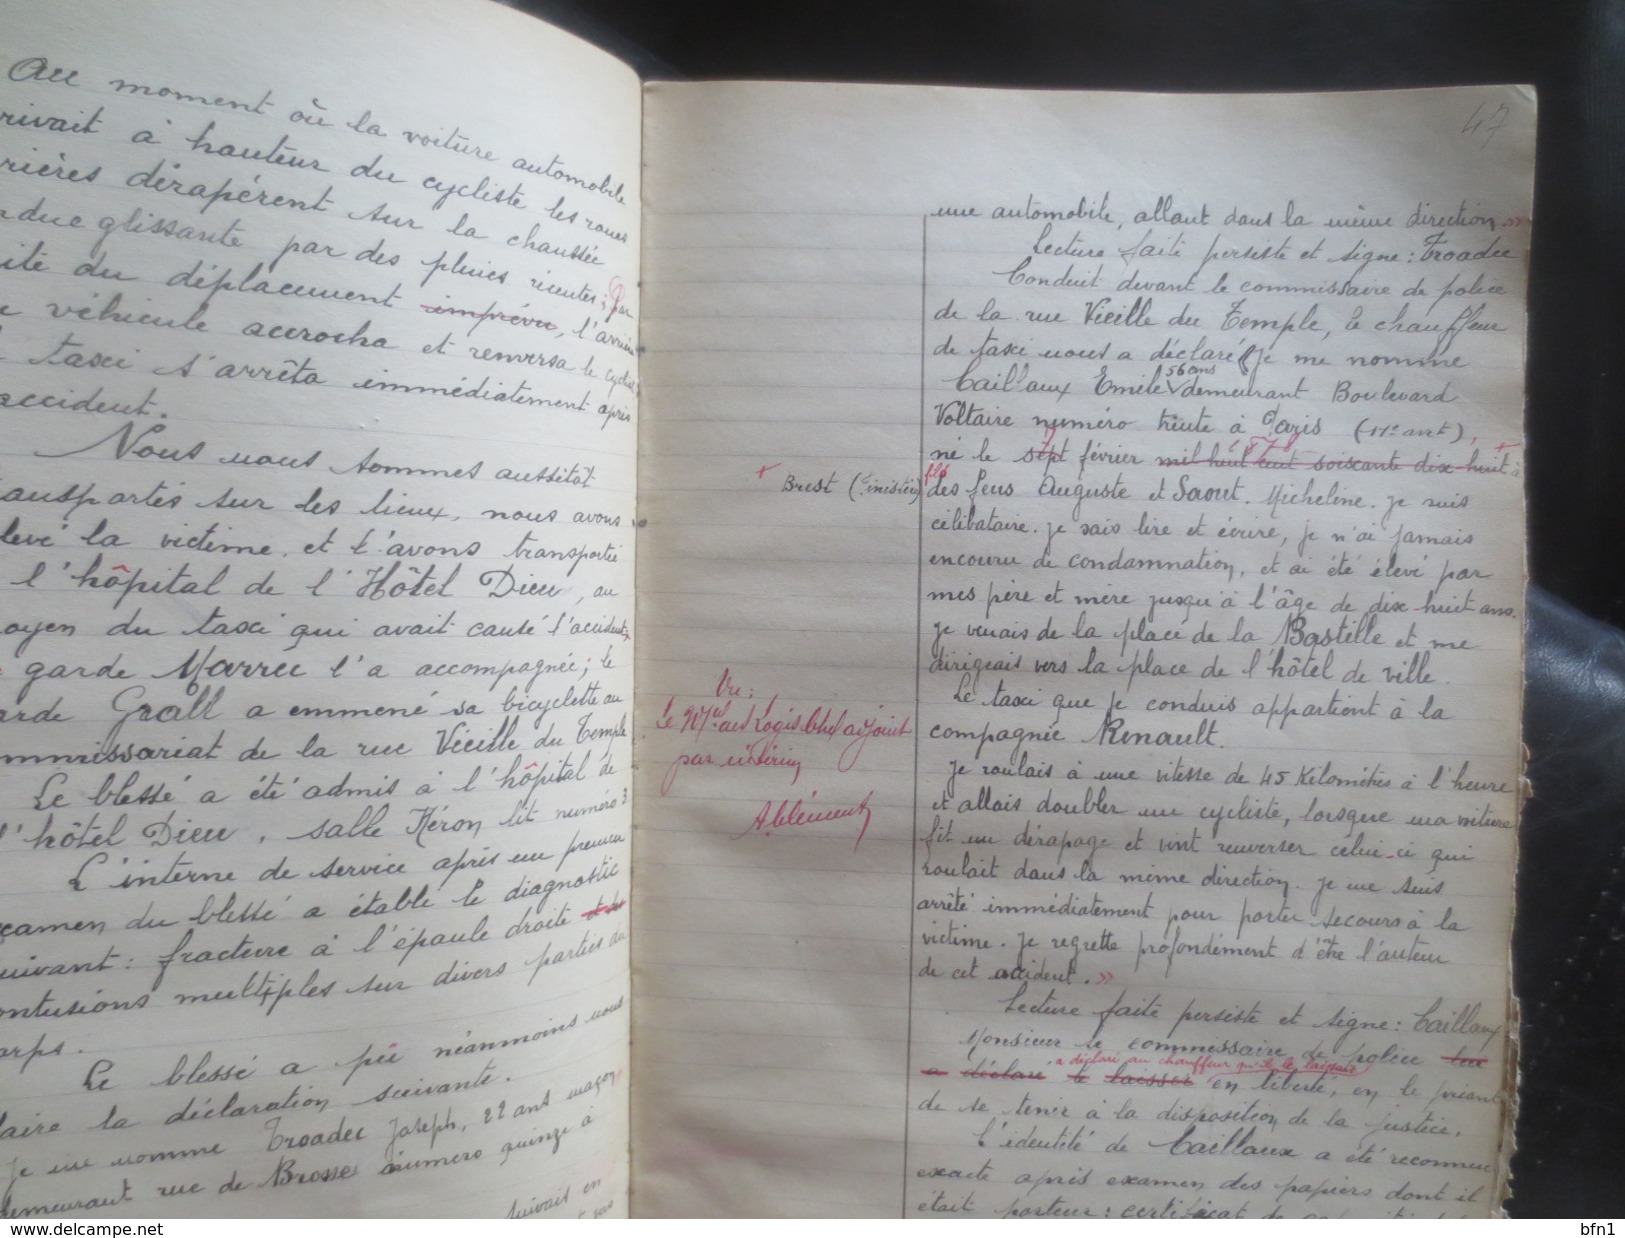 Au moment où la voiture automobile
rivait à hauteur du cycliste les roues
rières dérapèrent sur la chaussée
ndue glissante par des pluies récentes; Par
ité du déplacement imprévu, l'arrière
véhicule accrocha et renversa le cycliste
taxi s'arrêta immédiatement après
accident.
Nous nous sommes aussitôt
ansportés sur les lieux, nous avons
levé la victime et l'avons transportée
l'hôpital de l'Hôtel Dieu, au
oyen du taxi qui avait causé l'accident
garde Marrec l'a accompagnée; le
arde Grall a emmené sa bicyclette au
mmissariat de la rue Vieille du Temple
Le blessé a été admis à l'hôpital de
l'hôtel Dieu, salle Héron lit numéro 3
L'interne de service après un premier
xamen du blessé a établi le diagnostic
uivant : fracture à l'épaule droite et des
ontusions multiples sur divers parties du
orps.
Le blessé a pu néanmoins nous
faire la déclaration suivante.
Je me nomme Troadec Joseph, 22 ans maçon
demeurant rue de Brosse numéro quinze à
suivais en
47
une automobile, allant dans la même direction »
Lecture faite persiste et signe : Troadec
Conduit devant le commissaire de police
de la rue Vieille du Temple, le chauffeur
de taxi nous a déclaré (Je me nomme
Caillaux Emile 56 ans demeurant Boulevard
Voltaire numéro trente à Paris (11e arrt),
né le sept février mil huit cent soixante dix huit + à
+ Brest (Finistère)
fils des feus Auguste et Saout. Micheline. je suis
célibataire. je sais lire et écrire, je n'ai jamais
encouru de condamnation, et ai été élevé par
mes père et mère jusqu'à l'âge de dix-huit ans.
je venais de la place de la Bastille et me
dirigeais vers la place de l'hôtel de ville.
Le taxi que je conduis appartient à la
compagnie Renault.
Vu :
Le Mal des Logis Chef adjoint
par intérim
A. Clément
Je roulais à une vitesse de 45 Kilomètres à l'heure
et allais doubler un cycliste, lorsque ma voiture
fit un dérapage et vint renverser celui-ci qui
roulait dans la même direction. je me suis
arrêté immédiatement pour porter secours à la
victime. Je regrette profondément d'être l'auteur
de cet accident. »
Lecture faite persiste et signe : Caillaux
Monsieur le commissaire de police lui
a déclaré au chauffeur qu'il le laissait
a déclaré le laisser en liberté, en le priant
de se tenir à la disposition de la justice.
L'identité de Caillaux a été reconnue
exacte après examen des papiers dont il
était porteur : certificat de
www.delcampe.net
bfn1